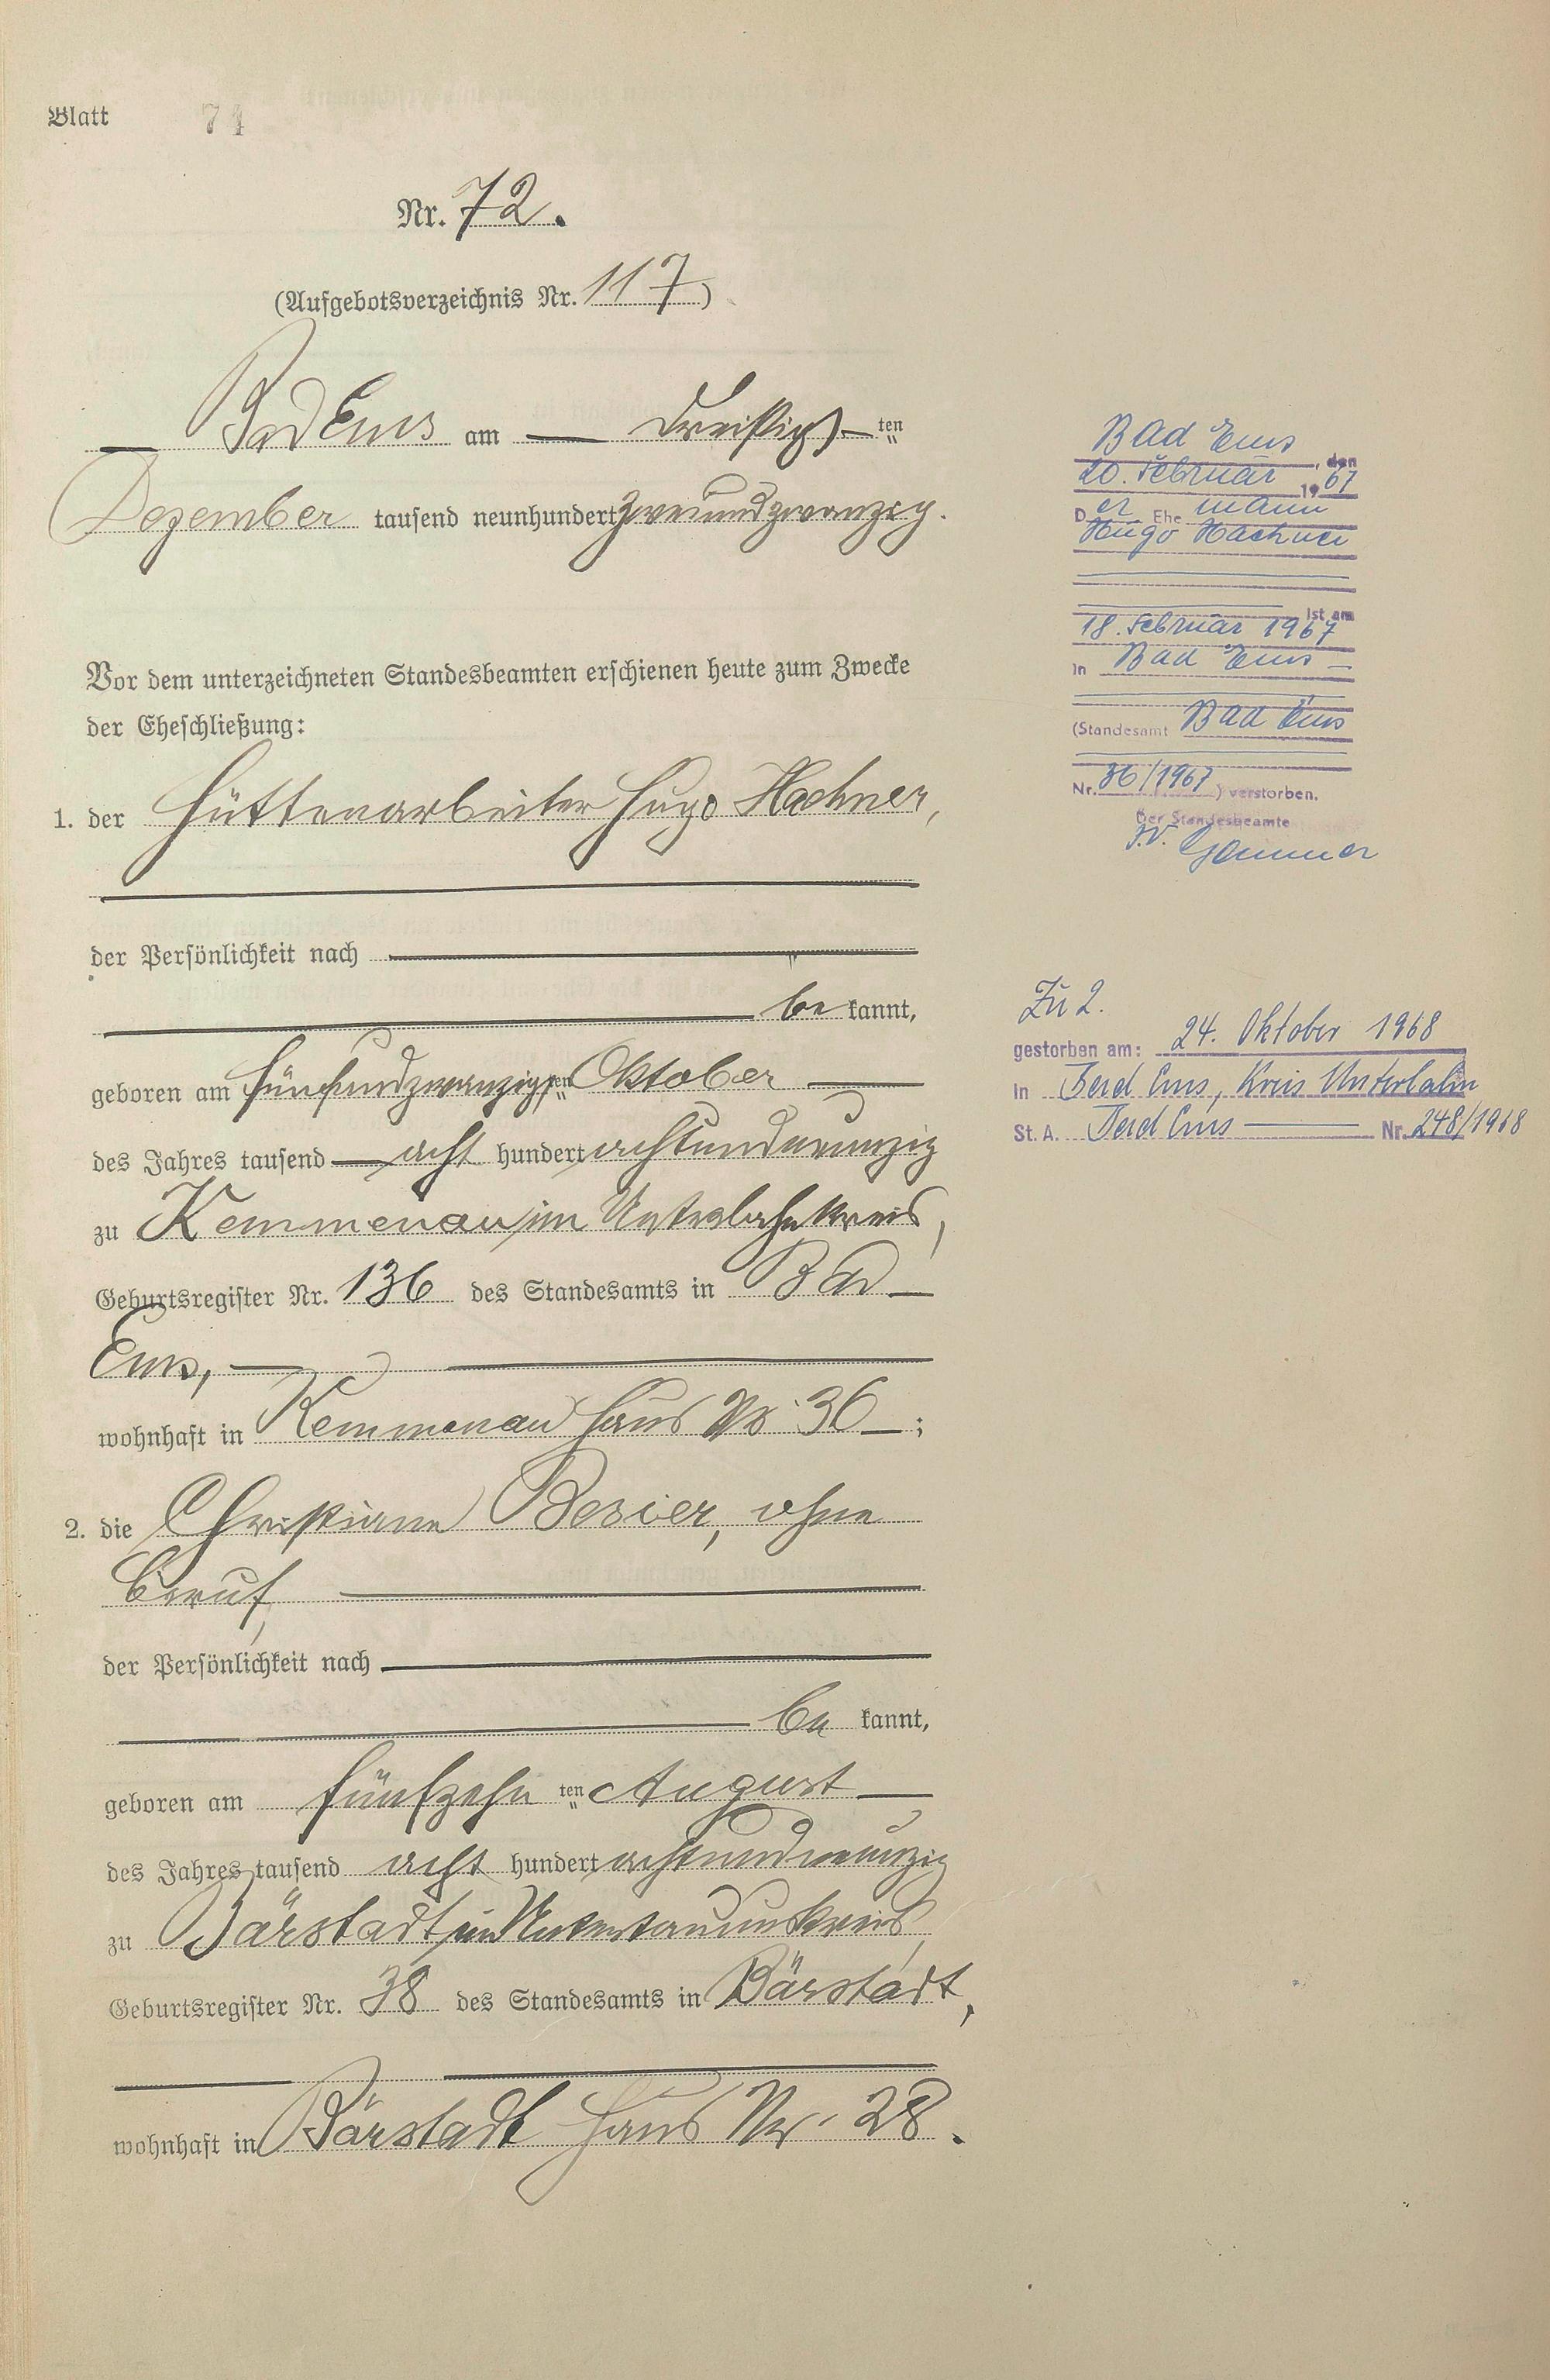 Blatt 74
Nr. 72.
(Aufgebotsverzeichnis Nr. 117)
Bad Ems am dreißigsten
Dezember tausend neunhundert zweiundzwanzig.
Vor dem unterzeichneten Standesbeamten erschienen heute zum Zwecke
der Eheschließung:
1. der Hüttenarbeiter Hugo Hachner,
der Persönlichkeit nach
be kannt,
geboren am fünfundzwanzigsten Oktober
des Jahres tausend acht hundert achtundneunzig
zu Kemmenau im Unterlahnkreis,
Geburtsregister Nr. 136 des Standesamts in Bad
Ems,
wohnhaft in Kemmenau Haus Nr. 36;
2. die Christiane Besier, ohne
Beruf,
der Persönlichkeit nach
be kannt,
geboren am fünfzehn ten August
des Jahres tausend acht hundert achtundneunzig
zu Bärstadt im Untertaunuskreis,
Geburtsregister Nr. 38 des Standesamts in Bärstadt,
wohnhaft in Bärstadt Haus Nr. 28.
Bad Ems, den
20. Februar 1967
Der Ehemann
Hugo Hachner
ist am
18. Februar 1967
in Bad Ems
(Standesamt Bad Ems
Nr. 36/1967) verstorben.
Der Standesbeamte
I.V.
Zu 2.
gestorben am: 24. Oktober 1968
in Bad Ems, Kreis Unterlahn
St. A. Bad Ems Nr. 248/1968